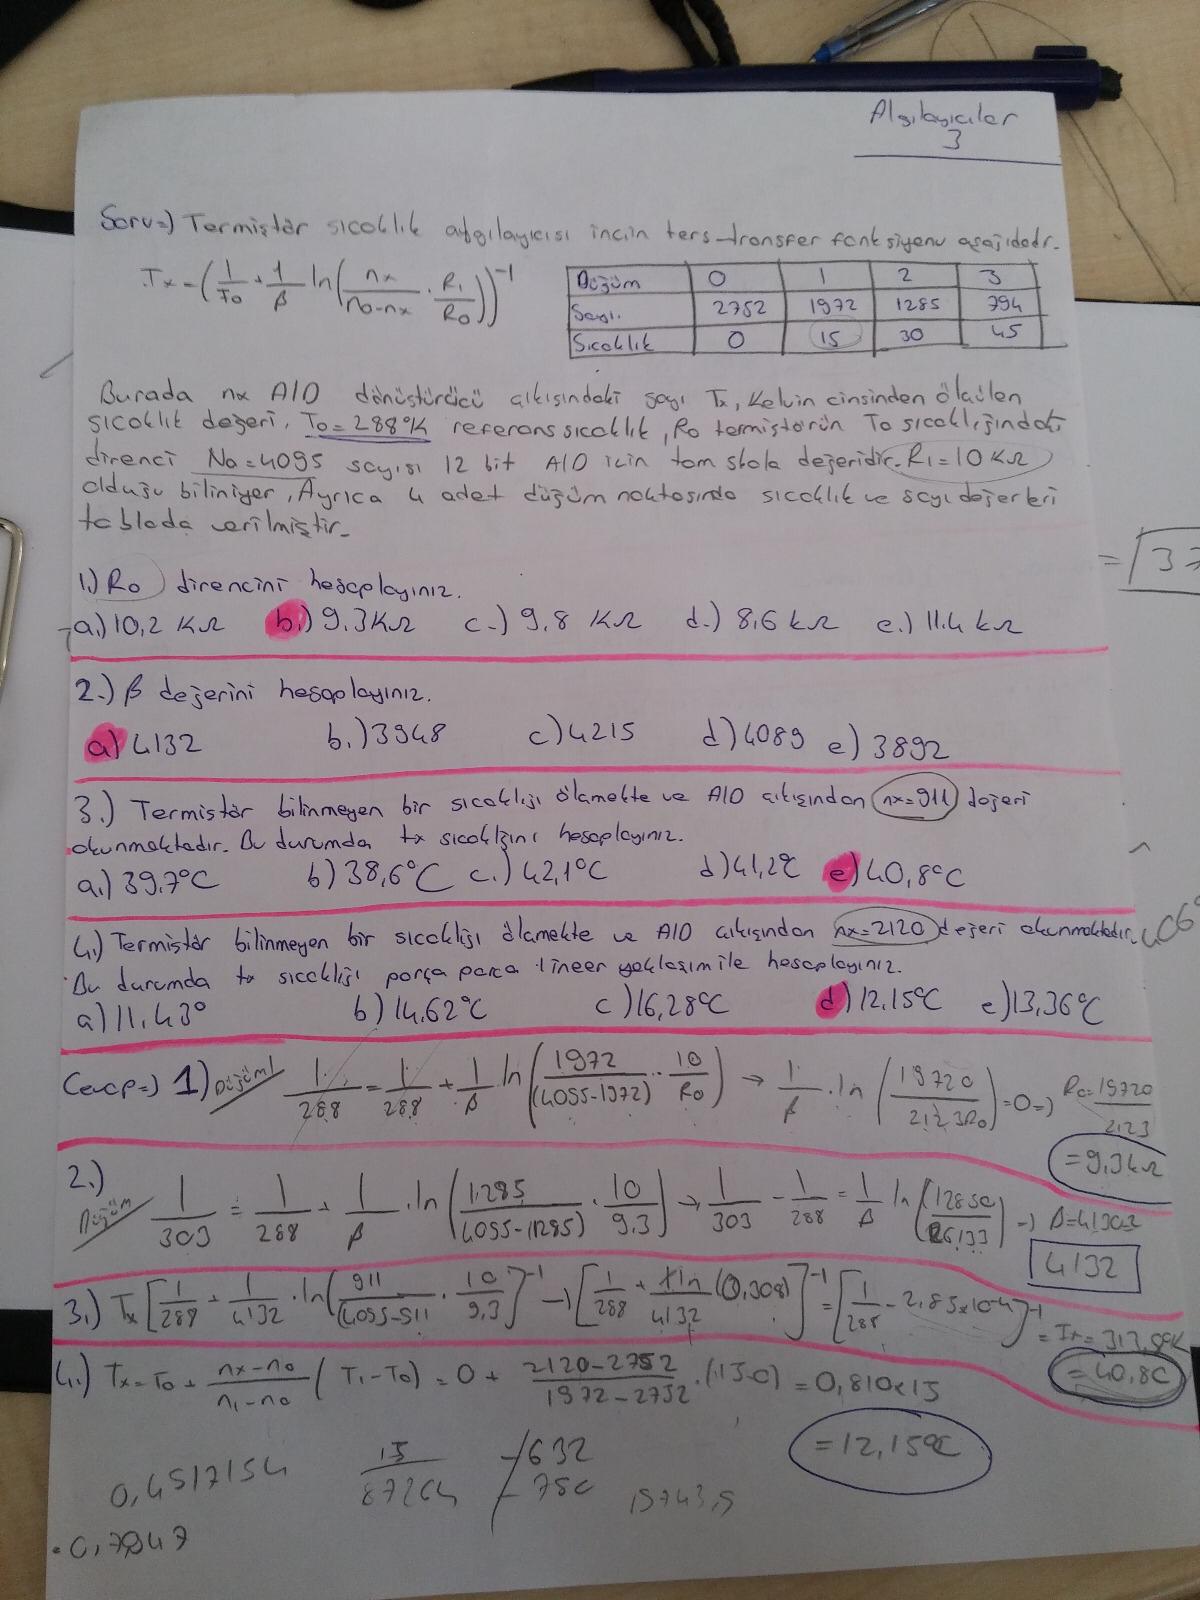 Algılayıcılar
3
Soru=) Termistör sıcaklık algılayıcısı incin ters-transfer fonksiyonu aşağıdadır.
Tx=(1/T0+1/β ln(nx/n0-nx · R1/R0))^-1
Düğüm 0 1 2 3
Sayı. 2752 1972 1285 794
Sıcaklık 0 15 30 45
Burada nx A/D dönüştürücü çıkışındaki sayı Tx, Kelvin cinsinden ölçülen
sıcaklık değeri, T0=288°K referans sıcaklık, R0 termistörün T0 sıcaklığındaki
direnci N0=4095 sayısı 12 bit A/D için tam skala değeridir. R1=10 KΩ
olduğu biliniyor, Ayrıca 4 adet düğüm noktasında sıcaklık ve sayı değerleri
tabloda verilmiştir.
= 37
1.) R0 direncini hesaplayınız.
a.) 10,2 KΩ b.) 9.3KΩ c.) 9,8 KΩ d.) 8,6 kΩ e.) 11.4 kΩ
2.) β değerini hesaplayınız.
a) 4132 b.) 3948 c) 4215 d) 4089 e) 3892
3.) Termistör bilinmeyen bir sıcaklığı ölçmekte ve A/D çıkışından nx=911 değeri
okunmaktadır. Bu durumda tx sıcaklığını hesaplayınız.
a.) 39,7°C b) 38,6°C c.) 42,1°C d) 41,2°C e) 40,8°C
4.) Termistör bilinmeyen bir sıcaklığı ölçmekte ve A/D çıkışından nx=2120 değeri okunmaktadır.
Bu durumda tx sıcaklığı parça parça lineer yaklaşım ile hesaplayınız.
a) 11,43° b) 14,62°C c) 16,28°C d) 12,15°C e) 13,36°C
Cevap=) 1) Düğüm 1 1/288 = 1/288 + 1/β ln(1972/(4095-1972) · 10/R0) → 1/β · ln(19720/2123R0)=0 =) R0=19720/2123
=9,3kΩ
2.) Düğüm 1/303 = 1/288 + 1/β · ln(1285/(4095-1285) · 10/9.3) → 1/303 - 1/288 = 1/β ln(12850/26133) =) β=4130.2
4132
3.) Tx[1/288 + 1/4132 · ln(911/4095-911 · 10/9.3)]^-1 → [1/288 + 1·ln/4132 (0,308)]^-1 = [1/288 - 2,85x10-4]^-1 = Tx = 313,8°K
=40,8C
4.) Tx=T0 + nx-n0/n1-n0 (T1-T0) = 0 + 2120-2752/1972-2752 · (15-0) = 0,810x15
=12,15°C
0,4517154 15/87264 -632/-780 19743,9
0,7947